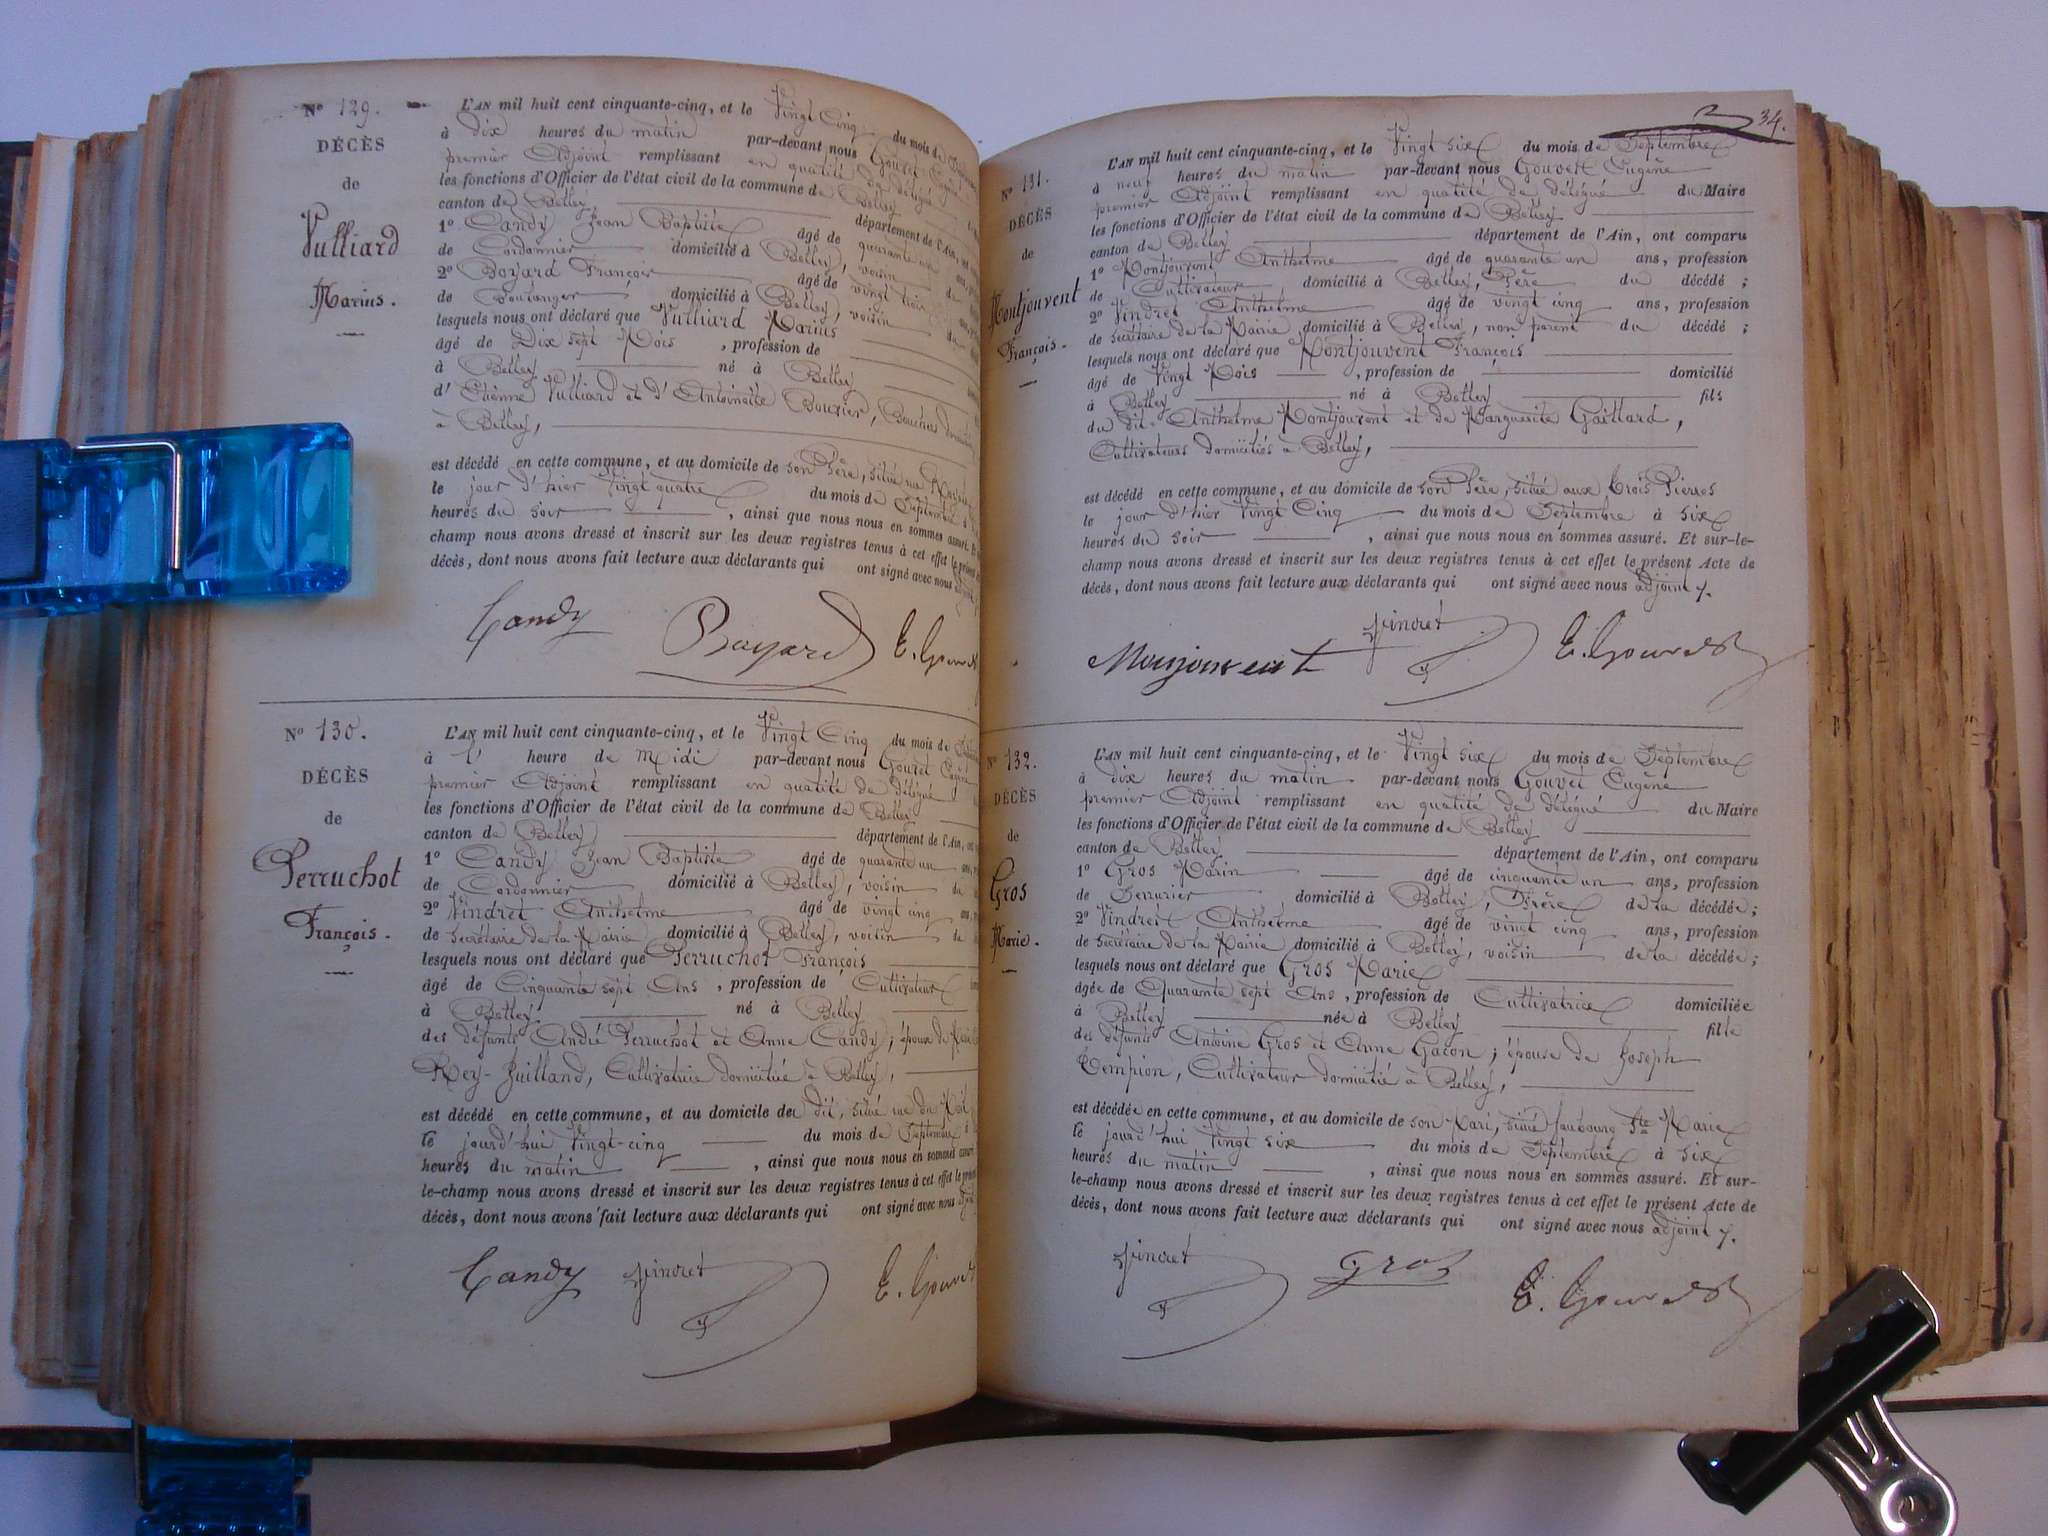 Nº 129.
DÉCÈS
de
Vulliard
Marius.
L'AN mil huit cent cinquante-cinq, et le Vingt Cinq du mois de
à Dix heures du matin par-devant nous Gouvet
premier Adjoint remplissant en qualité de délégué
les fonctions d'Officier de l'état civil de la commune de Belley
canton de Belley département de l'Ain,
1º Candy Jean Baptiste âgé de quarante un
de Cordonnier domicilié à Belley, voisin
2º Boyard François âgé de vingt
de Boulanger domicilié à Belley, voisin
lesquels nous ont déclaré que Vulliard Marius
âgé de Dix sept Mois , profession de
à Belley né à Belley
d'Etienne Vulliard et d'Antoinette Bouvier,
à Belley,
est décédé en cette commune, et au domicile de son Père, situé rue
le jour d'hier Vingt quatre du mois de Septembre
heures du soir , ainsi que nous nous en sommes assuré.
champ nous avons dressé et inscrit sur les deux registres tenus à cet effet le présent
décès, dont nous avons fait lecture aux déclarants qui ont signé avec nous
Candy Bayard E. Gouvet
Nº 130.
DÉCÈS
de
Perruchot
François.
L'AN mil huit cent cinquante-cinq, et le Vingt Cinq du mois de
à l' heure de Midi par-devant nous Gouvet Eugène
premier Adjoint remplissant en qualité de délégué
les fonctions d'Officier de l'état civil de la commune de Belley
canton de Belley département de l'Ain,
1º Candy Jean Baptiste âgé de quarante un
de Cordonnier domicilié à Belley, voisin
2º Vindret Anthelme âgé de vingt cinq
de secrétaire de la Mairie domicilié à Belley, voisin
lesquels nous ont déclaré que Perruchot François
âgé de Cinquante sept Ans , profession de Cultivateur
à Belley né à Belley
des défunts André Perruchot et Anne Candy; époux de
Rey-Juilland, Cultivatrice domiciliée à Belley,
est décédé en cette commune, et au domicile de dit, situé rue du
le jourd'hui Vingt-cinq du mois de Septembre
heures du matin , ainsi que nous nous en sommes
le-champ nous avons dressé et inscrit sur les deux registres tenus à cet effet le
décès, dont nous avons fait lecture aux déclarants qui ont signé avec nous
Candy Vindret E. Gouvet
34.
Nº 131.
DÉCÈS
de
Montjouvent
François.
L'AN mil huit cent cinquante-cinq, et le Vingt six du mois de Septembre
à neuf heures du matin par-devant nous Gouvet Eugène
premier Adjoint remplissant en qualité de délégué du Maire
les fonctions d'Officier de l'état civil de la commune de Belley
canton de Belley département de l'Ain, ont comparu
1º Montjouvent Anthelme âgé de quarante un ans, profession
de Cultivateur, domicilié à Belley, Père du décédé ;
2º Vindret Anthelme âgé de vingt cinq ans, profession
de secrétaire de la Mairie domicilié à Belley, non parent du décédé ;
lesquels nous ont déclaré que Montjouvent François
âgé de Vingt Mois , profession de domicilié
à Belley né à Belley fils
du dit Anthelme Montjouvent et de Marguerite Gaillard,
Cultivateurs domiciliés à Belley,
est décédé en cette commune, et au domicile de son Père, situé aux Trois Pierres
le jour d'hier Vingt Cinq du mois de Septembre à six
heures du soir , ainsi que nous nous en sommes assuré. Et sur-le-
champ nous avons dressé et inscrit sur les deux registres tenus à cet effet le présent Acte de
décès, dont nous avons fait lecture aux déclarants qui ont signé avec nous adjoint.
Monjouvent Vindret E. Gouvet
Nº 132.
DÉCÈS
de
Gros
Marie.
L'AN mil huit cent cinquante-cinq, et le Vingt six du mois de Septembre
à dix heures du matin par-devant nous Gouvet Eugène
premier Adjoint remplissant en qualité de délégué du Maire
les fonctions d'Officier de l'état civil de la commune de Belley
canton de Belley département de l'Ain, ont comparu
1º Gros Marin âgé de cinquante un ans, profession
de Serrurier domicilié à Belley, Frère de la décédée ;
2º Vindret Anthelme âgé de vingt cinq ans, profession
de secrétaire de la Mairie domicilié à Belley, voisin de la décédée ;
lesquels nous ont déclaré que Gros Marie
âgée de Quarante sept Ans , profession de Cultivatrice domiciliée
à Belley née à Belley fille
des défunts Antoine Gros et Anne Gacon ; épouse de Joseph
Tempion, Cultivateur domicilié à Belley,
est décédée en cette commune, et au domicile de son Mari, situé faubourg Ste Marie
le jourd'hui Vingt six du mois de Septembre à six
heures du matin , ainsi que nous nous en sommes assuré. Et sur-
le-champ nous avons dressé et inscrit sur les deux registres tenus à cet effet le présent Acte de
décès, dont nous avons fait lecture aux déclarants qui ont signé avec nous adjoint.
Vindret Gros E. Gouvet